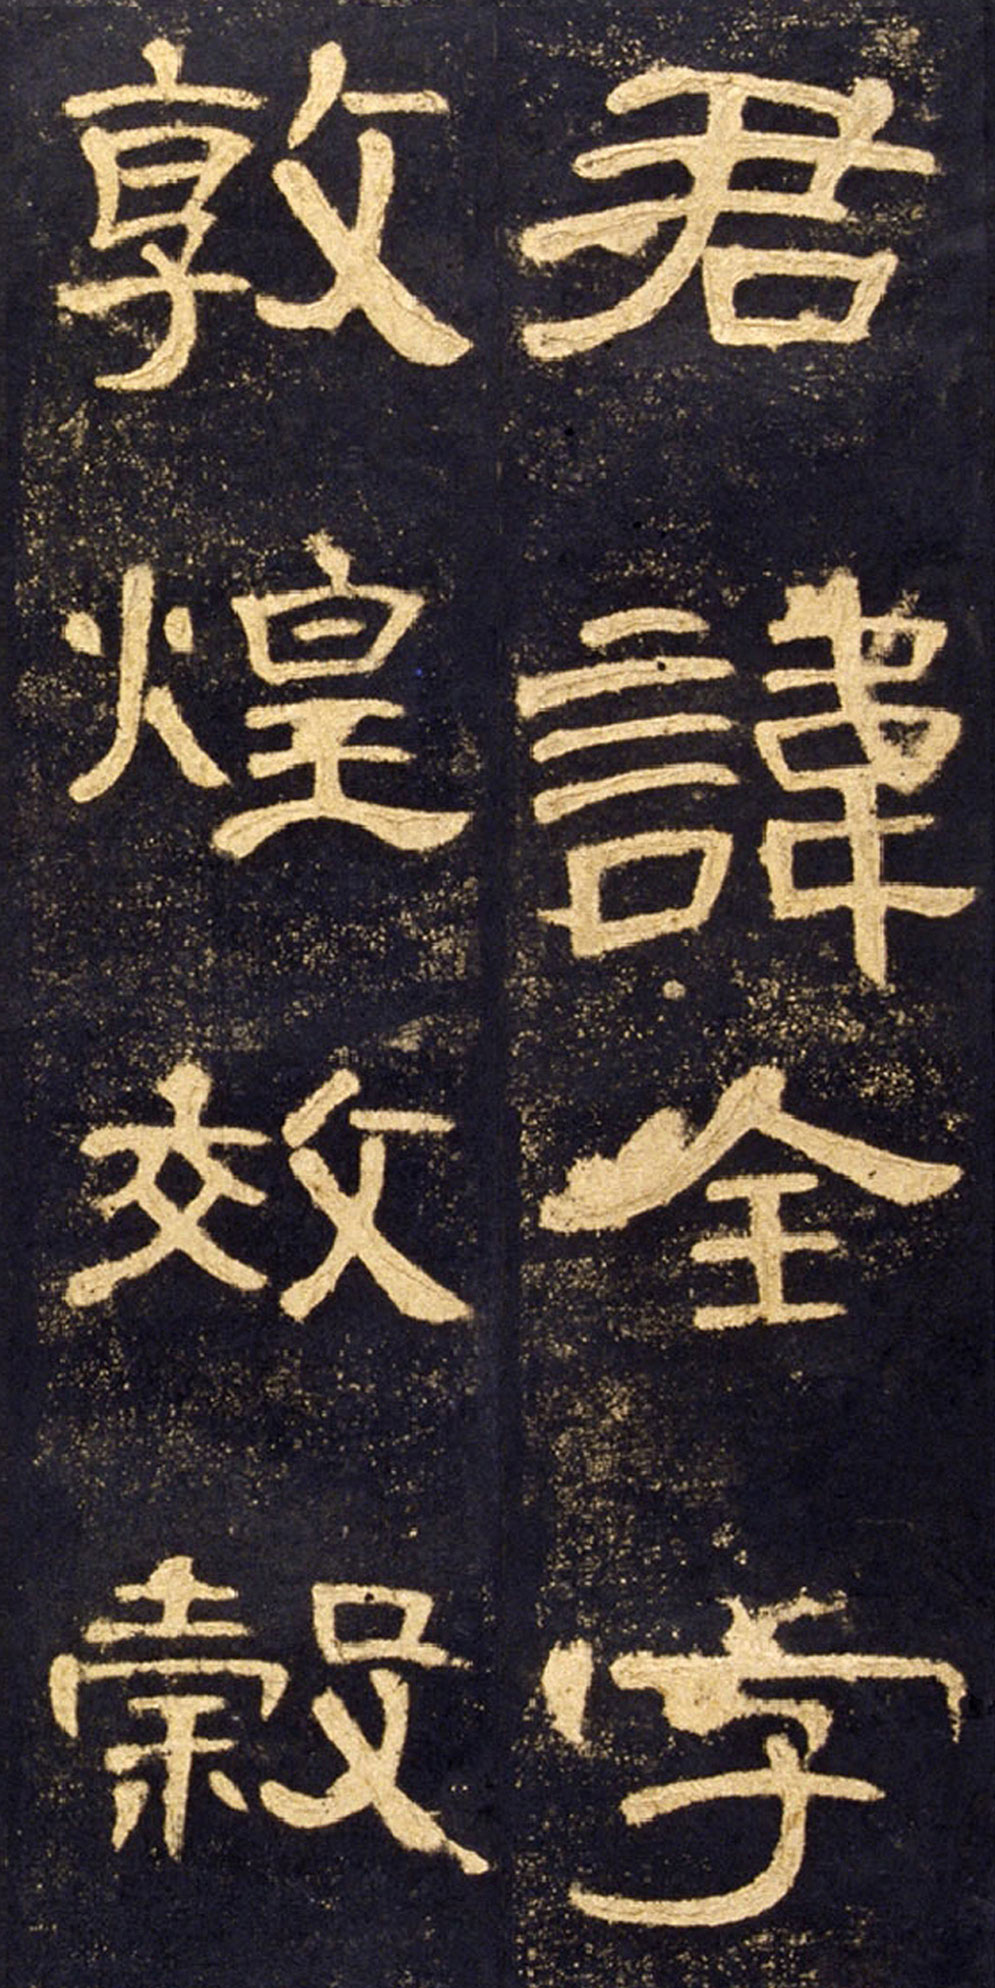 君諱全字
敦煌效穀